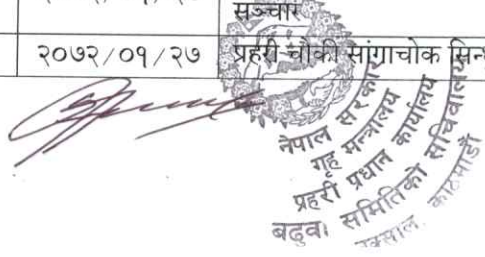 सञ्चार
२०७२/०१/२७ प्रहरी चौकी सांगाचोक
नेपाल सरकार
गृह मन्त्रालय
प्रहरी प्रधान कार्यालय
बढुवा समितिको सचिवालय
काठमाडौं